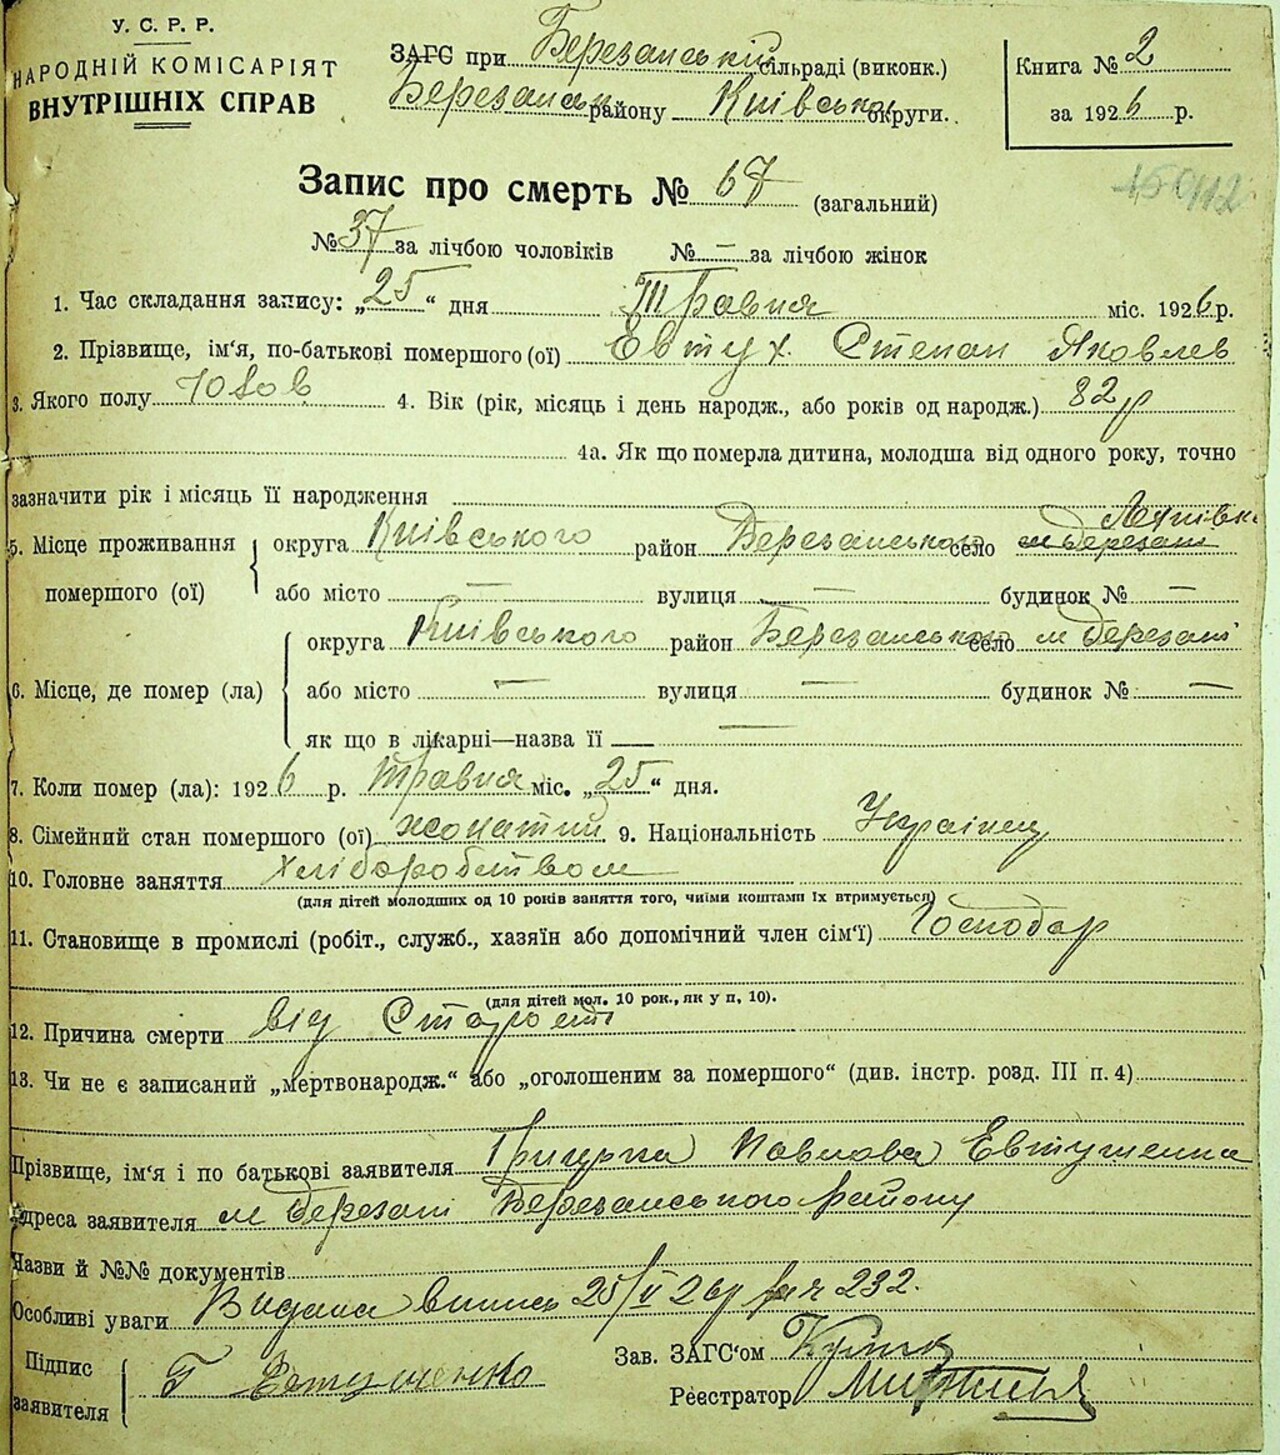 У. С. Р. Р.
НАРОДНІЙ КОМІСАРІЯТ
ВНУТРІШНІХ СПРАВ
ЗАГС при Березанській сільраді (виконк.)
Березанськ району Київської округи.
Книга № 2
за 1926 р.
Запис про смерть № 67 (загальний)
№ 37 за лічбою чоловіків № — за лічбою жінок
1. Час складання запису: „25“ дня Травня міс. 1926 р.
2. Прізвище, ім‘я, по-батькові помершого (ої) Евтух. Степан Яковлев
3. Якого полу Чолов 4. Вік (рік, місяць і день народж., або років од народж.) 82 р
4а. Як що померла дитина, молодша від одного року, точно
зазначити рік і місяць її народження
5. Місце проживання помершого (ої) округа Київського район Березанського село м Березані
або місто — вулиця — будинок № —
6. Місце, де помер (ла) округа Київського район Березанського село м Березані
або місто — вулиця — будинок № —
як що в лікарні—назва її —
7. Коли помер (ла): 1926 р. Травня міс. „25“ дня.
8. Сімейний стан помершого (ої) жонатий 9. Національність Украінец
10. Головне заняття Хліборобством
(для дітей молодших од 10 років заняття того, чиїми коштами їх втримується)
11. Становище в промислі (робіт., служб., хазяїн або допомічний член сім‘ї) Господар
(для дітей мол. 10 рок., як у п. 10).
12. Причина смерти від Старости
13. Чи не є записаний „мертвонародж.“ або „оголошеним за помершого“ (див. інстр. розд. III п. 4)
Прізвище, ім‘я і по батькові заявителя Павлова Евтушенка
Адреса заявителя м Березані Березанського району
Назви й №№ документів
Особливі уваги Видана випись 25/V 26р 232.
Підпис заявителя Г Евтушенко
Зав. ЗАГС‘ом
Реєстратор